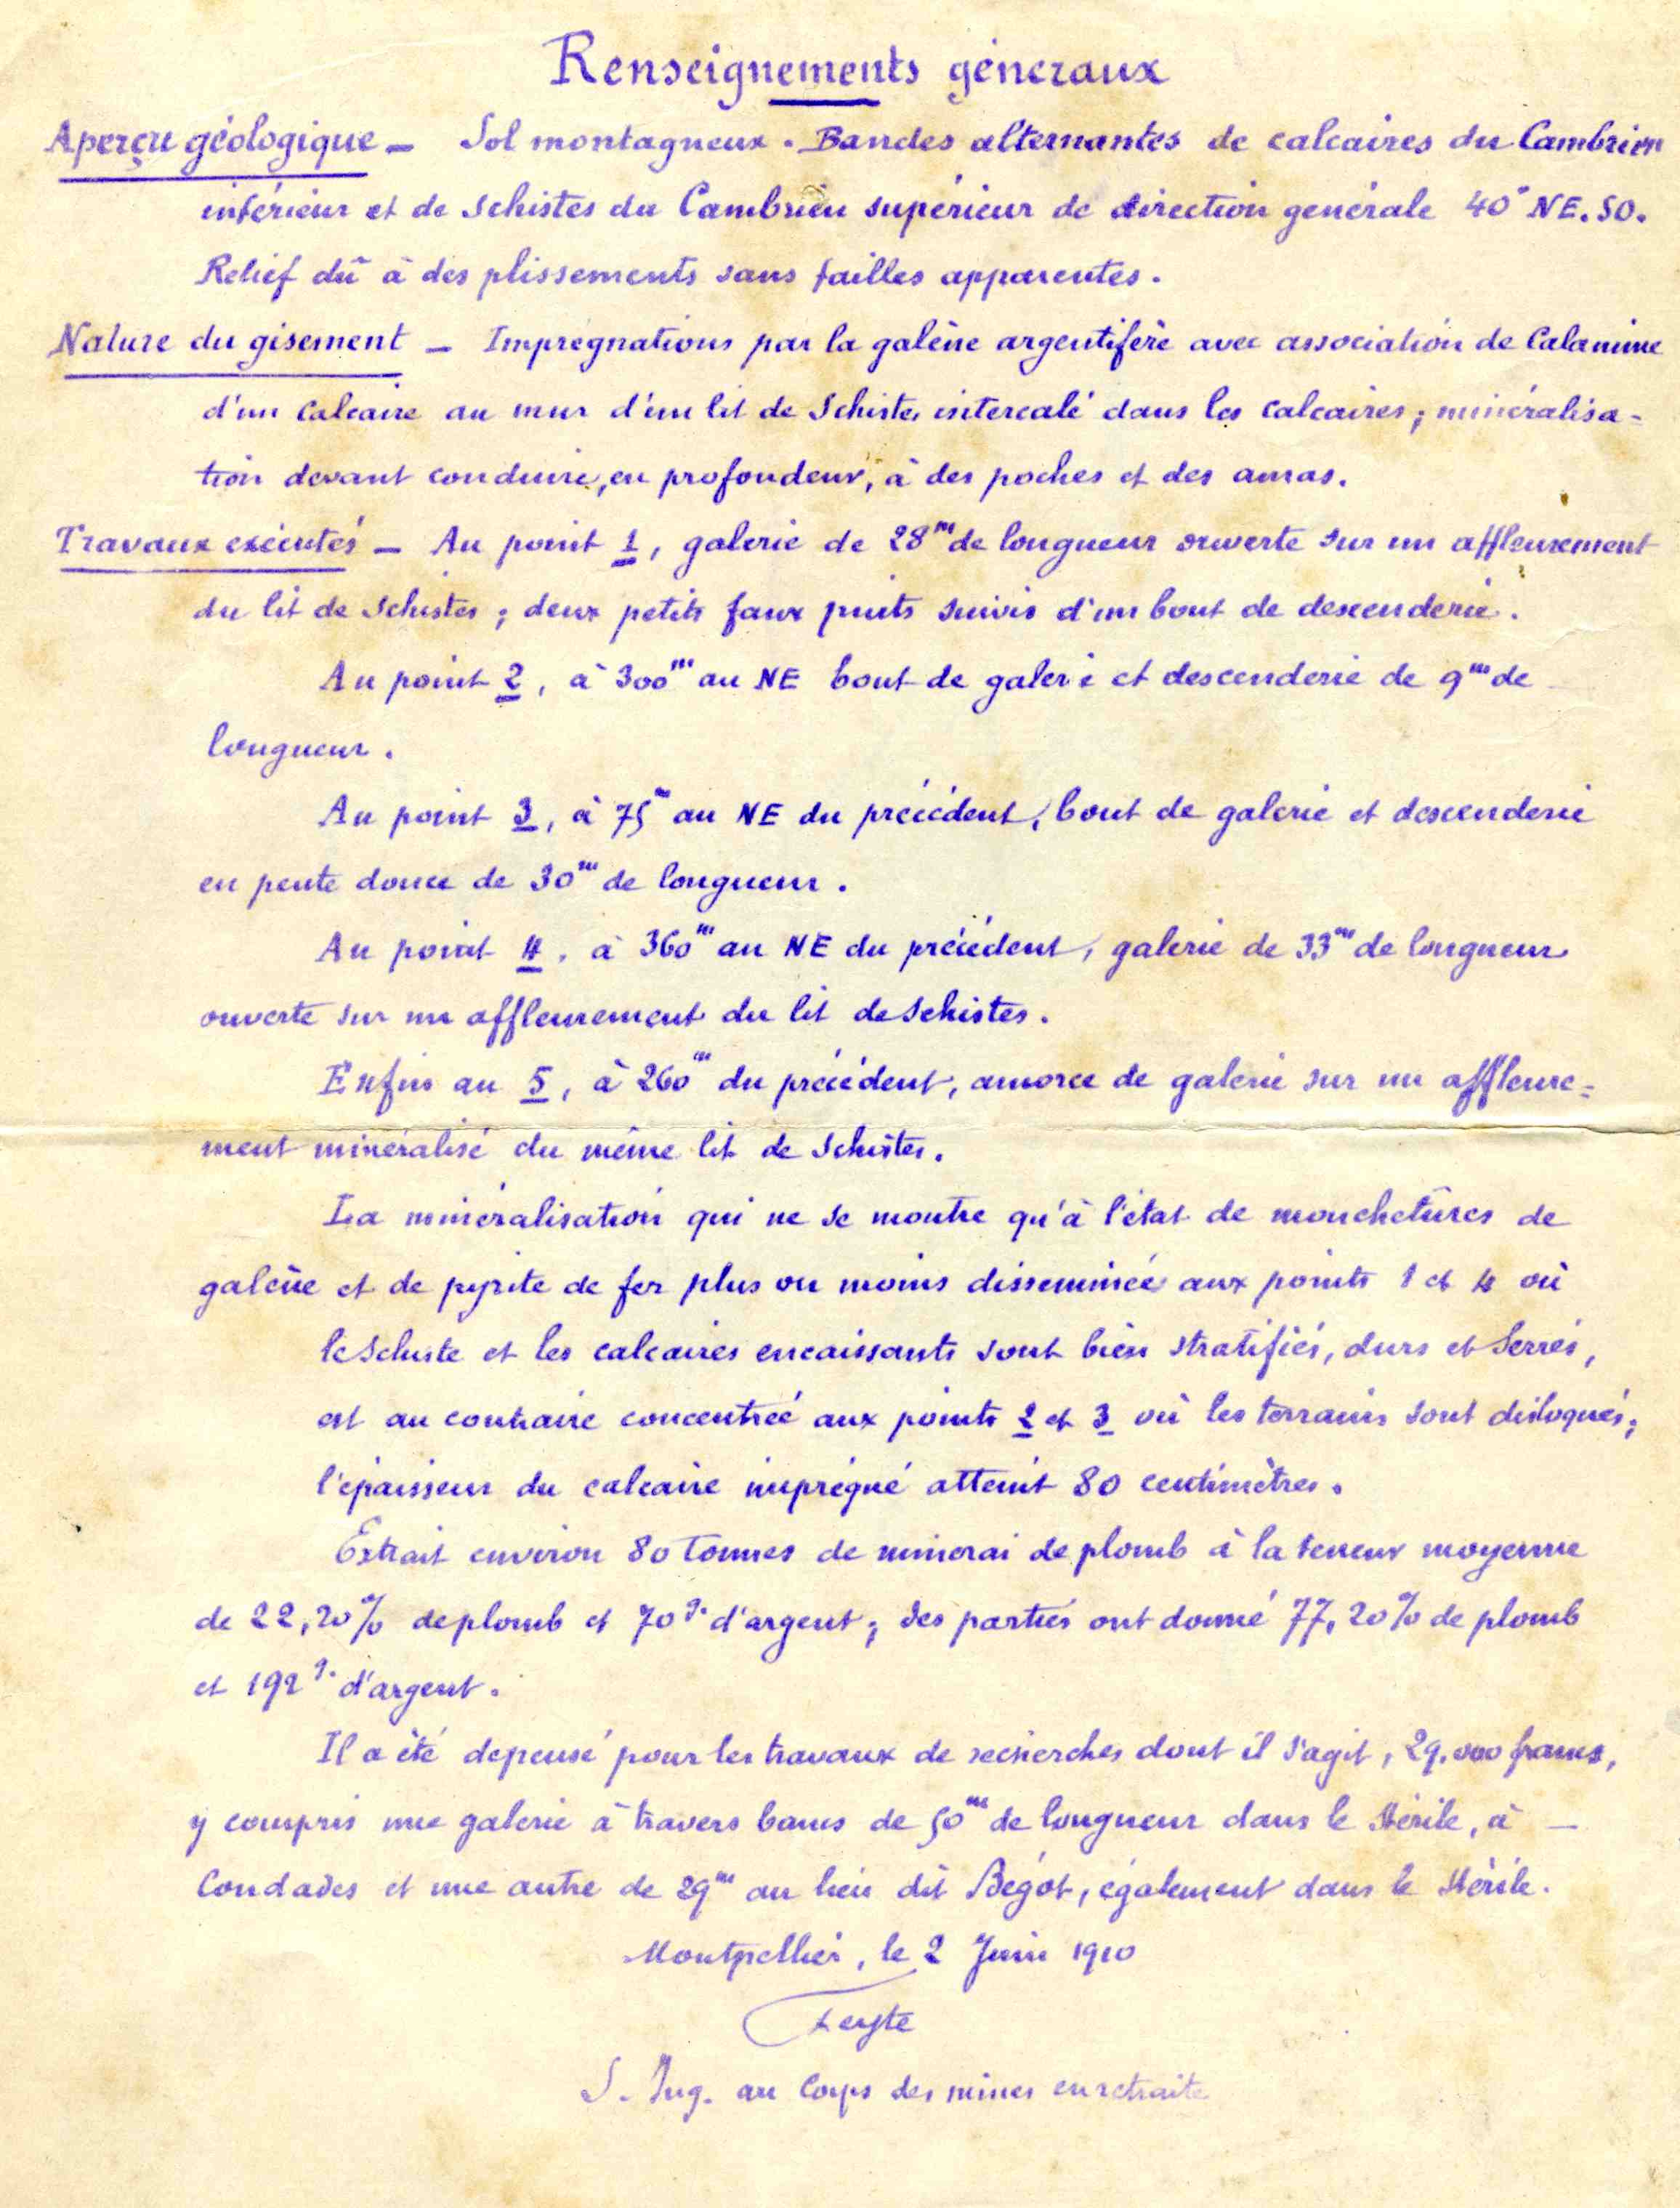 Renseignements géneraux
Aperçu géologique – Sol montagneux. Bandes alternantes de calcaires du Cambrien
inférieur et de schistes du Cambrien supérieur de direction générale 40° NE. SO.
Relief dû à des plissements sans failles apparentes.
Nature du gisement – Imprégnations par la galène argentifère avec association de Calamine
d'un Calcaire au mur d'un lit de Schistes intercalé dans les calcaires; minéralisa-
tion devant conduire, en profondeur, à des poches et des amas.
Travaux exécutés – Au point 1, galerie de 28m de longueur ouverte sur un affleurement
du lit de schistes; deux petits faux puits suivis d'un bout de descenderie.
Au point 2, à 300m au NE bout de galerie et descenderie de 9m de
longueur.
Au point 3, à 75m au NE du précédent, bout de galerie et descenderie
en pente douce de 30m de longueur.
Au point 4, à 360m au NE du précédent, galerie de 33m de longueur
ouverte sur un affleurement du lit de schistes.
Enfin au 5, à 260m du précédent, amorce de galerie sur un affleure-
ment minéralisé du même lit de schistes.
La minéralisation qui ne se montre qu'à l'état de mouchetures de
galène et de pyrite de fer plus ou moins disséminée aux points 1 et 4 où
le schiste et les calcaires encaissants sont bien stratifiés, durs et serrés,
est au contraire concentrée aux points 2 et 3 où les terrains sont disloqués;
l'épaisseur du calcaire imprégné atteint 80 centimètres.
Extrait environ 80 tonnes de minerai de plomb à la teneur moyenne
de 22,20% de plomb et 70g. d'argent; des parties ont donné 77,20% de plomb
et 192g. d'argent.
Il a été dépensé pour les travaux de recherches dont il s'agit, 29.000 francs,
y compris une galerie à travers bancs de 50m de longueur dans le stérile, à –
Condades et une autre de 29m au lieu dit Bégot, également dans le stérile.
Montpellier, le 2 Juin 1910
Feyte
S. Ing. au Corps des mines en retraite